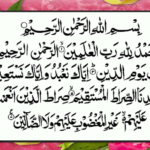 بِسْمِ اللهِ الرَّحْمٰنِ الرَّحِيْمِ
لِلّٰهِ رَبِّ الْعٰلَمِيْنَ الرَّحْمٰنِ الرَّحِيْمِ
يَوْمِ الدِّيْنِ اِيَّاكَ نَعْبُدُ وَاِيَّاكَ نَسْتَعِيْنُ
الصِّرَاطَ الْمُسْتَقِيْمَ صِرَاطَ الَّذِيْنَ اَنْعَمْتَ
عَلَيْهِمْ غَيْرِ الْمَغْضُوْبِ عَلَيْهِمْ وَلَا الضَّآلِّيْنَ